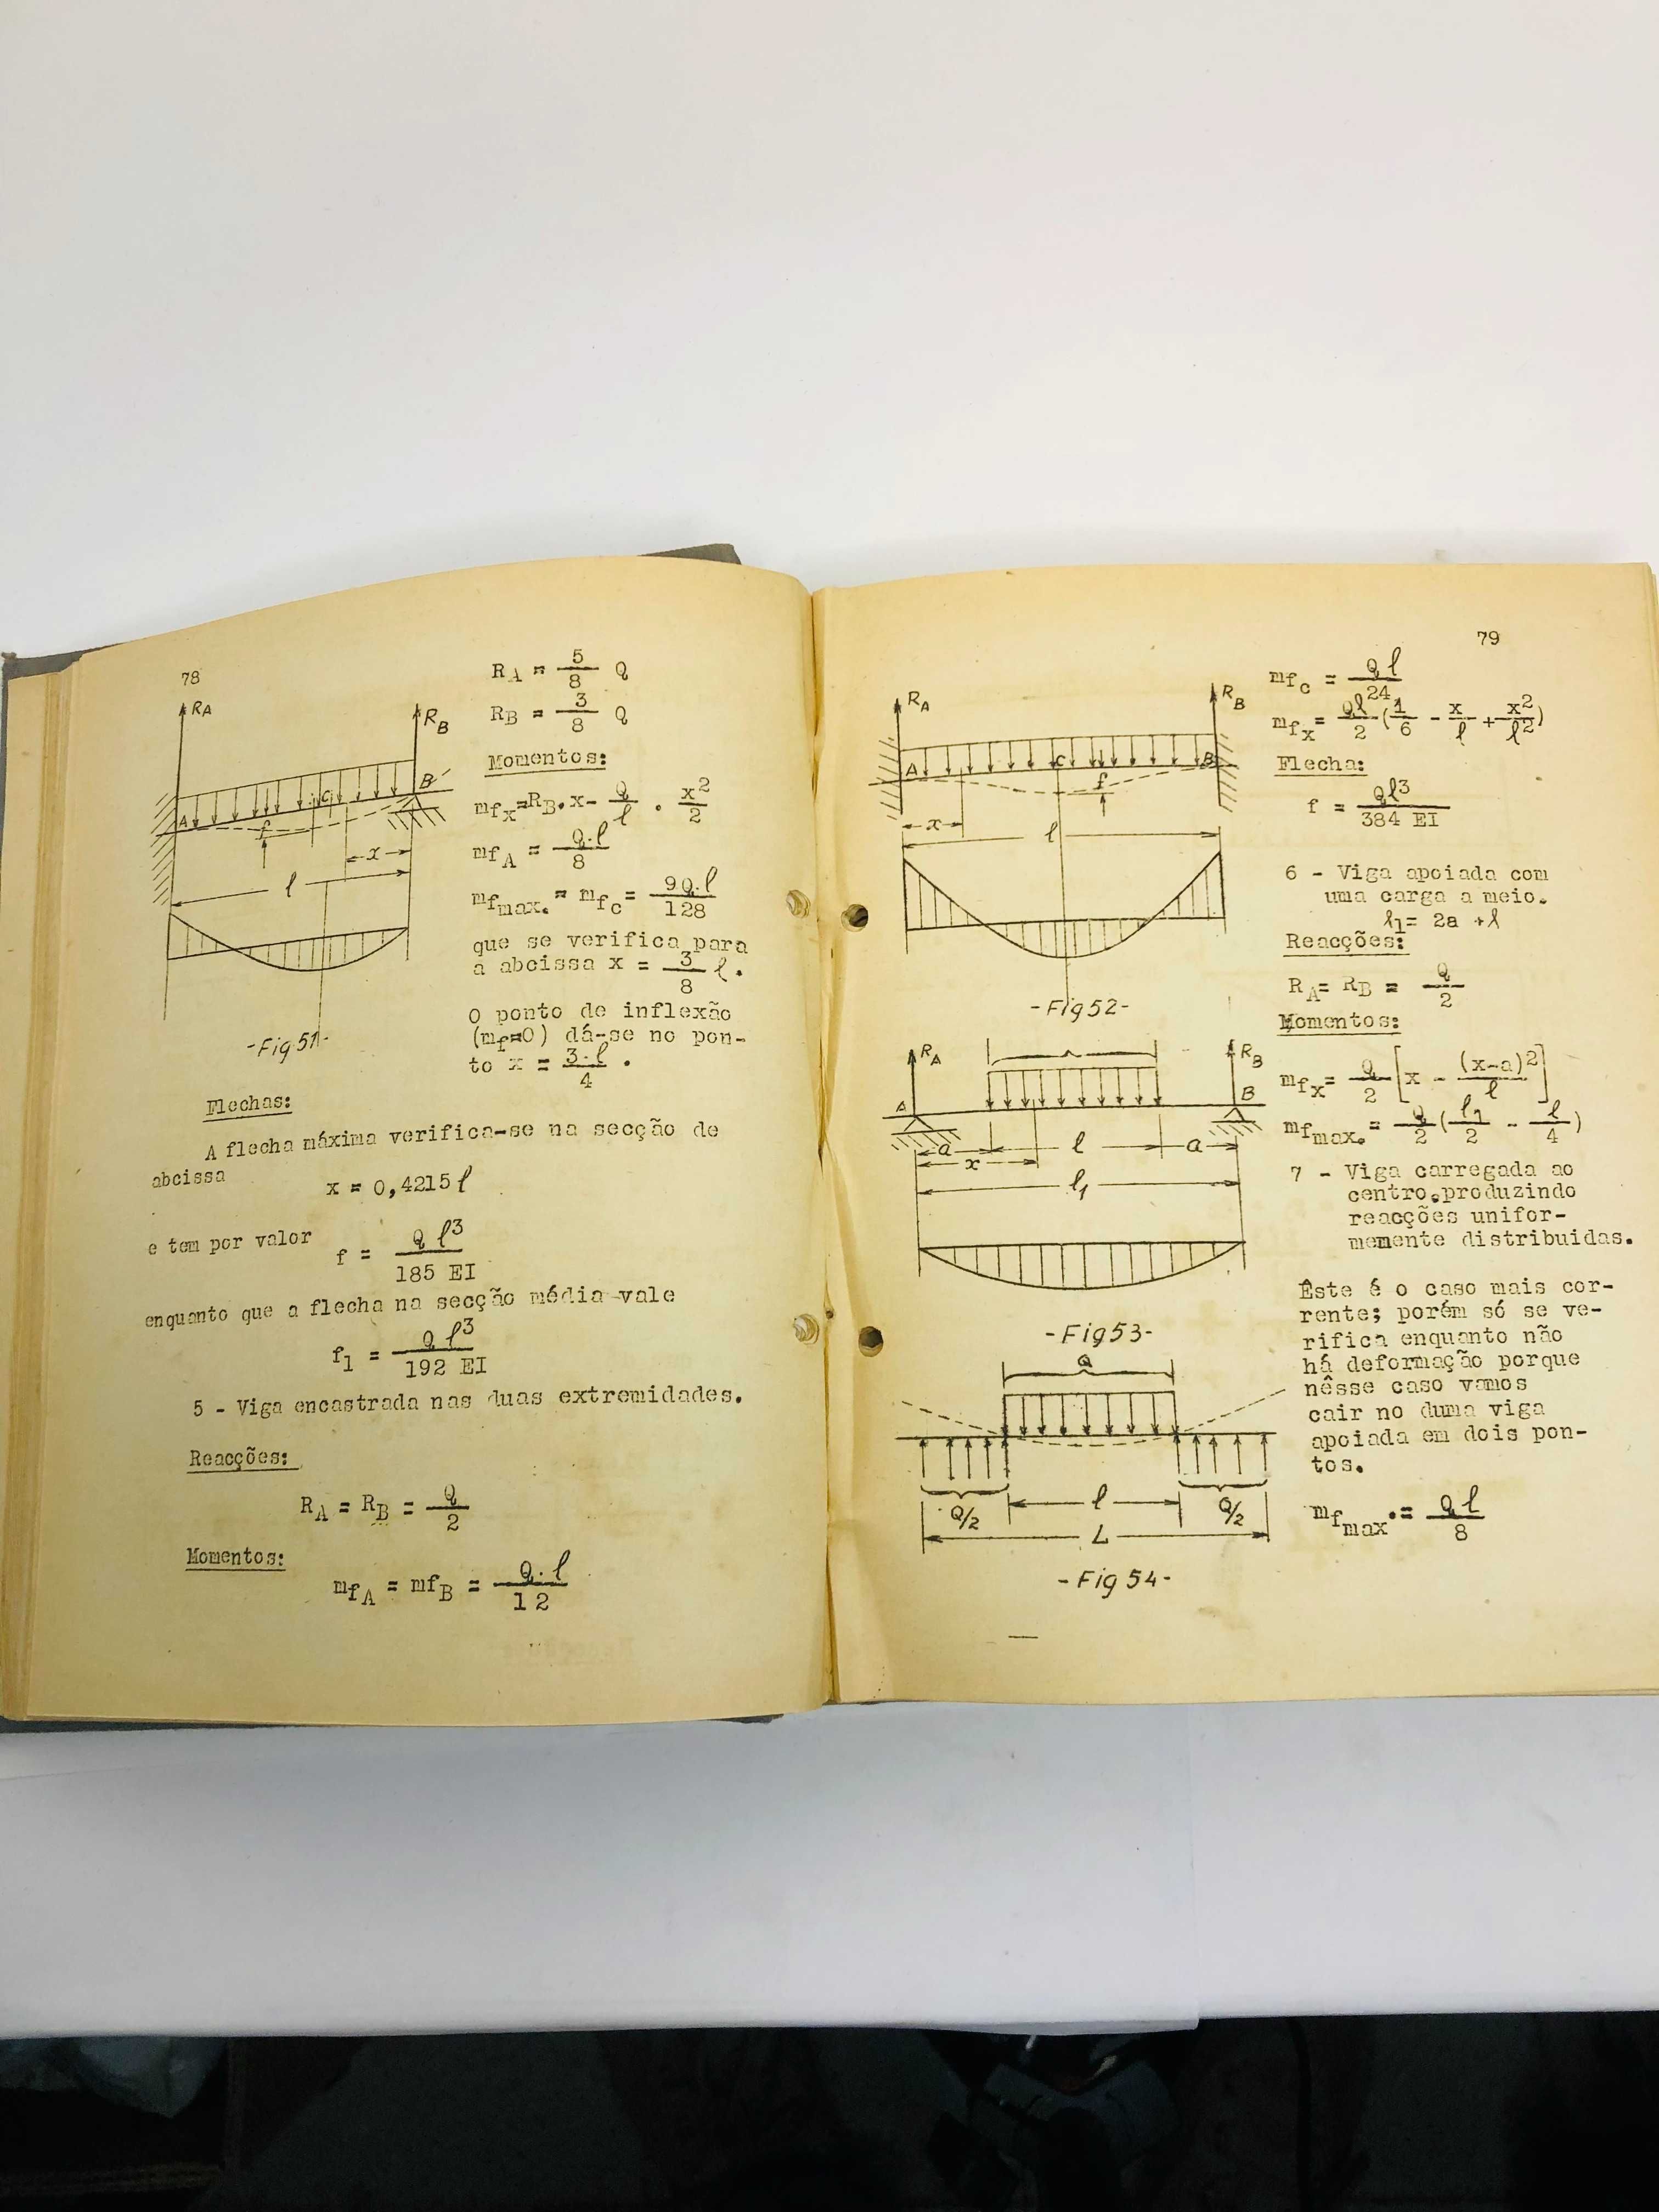 78
R_A = 5/8 Q
R_B = 3/8 Q
Momentos:
mf_x=R_B.x- Q/l . x²/2
mf_A = Q.l/8
mf_max. = mf_c= 9Q.l/128
que se verifica para
a abcissa x = 3/8 l.
O ponto de inflexão
(mf=0) dá-se no pon-
to x = 3.l/4 .
R_A
R_B
A
C
B
f
x
l
-Fig 51-
Flechas:
A flecha máxima verifica-se na secção de
abcissa
x = 0,4215 l
e tem por valor
f = Q l³/185 EI
enquanto que a flecha na secção média vale
f_1 = Q l³/192 EI
5 - Viga encastrada nas duas extremidades.
Reacções:
R_A = R_B = Q/2
Momentos:
mf_A = mf_B = Q.l/12
79
R_A
R_B
A
C
B
f
x
l
-Fig 52-
mf_c = Q l/24
mf_x= Ql/2 (1/6 - x/l + x²/l²)
Flecha:
f = Ql³/384 EI
6 - Viga apoiada com
uma carga a meio.
l_1= 2a + l
Reacções:
R_A= R_B = Q/2
Momentos:
mf_x= Q/2 [x - (x-a)²/l]
mf_max.= Q/2 (l_1/2 - l/4)
R_A
R_B
A
B
a
l
a
x
l_1
-Fig 53-
7 - Viga carregada ao
centro.produzindo
reacções unifor-
memente distribuidas.
Êste é o caso mais cor-
rente; porém só se ve-
rifica enquanto não
há deformação porque
nêsse caso vamos
cair no duma viga
apoiada em dois pon-
tos.
mf_max.= Q l/8
Q
Q/2
l
Q/2
L
-Fig 54-